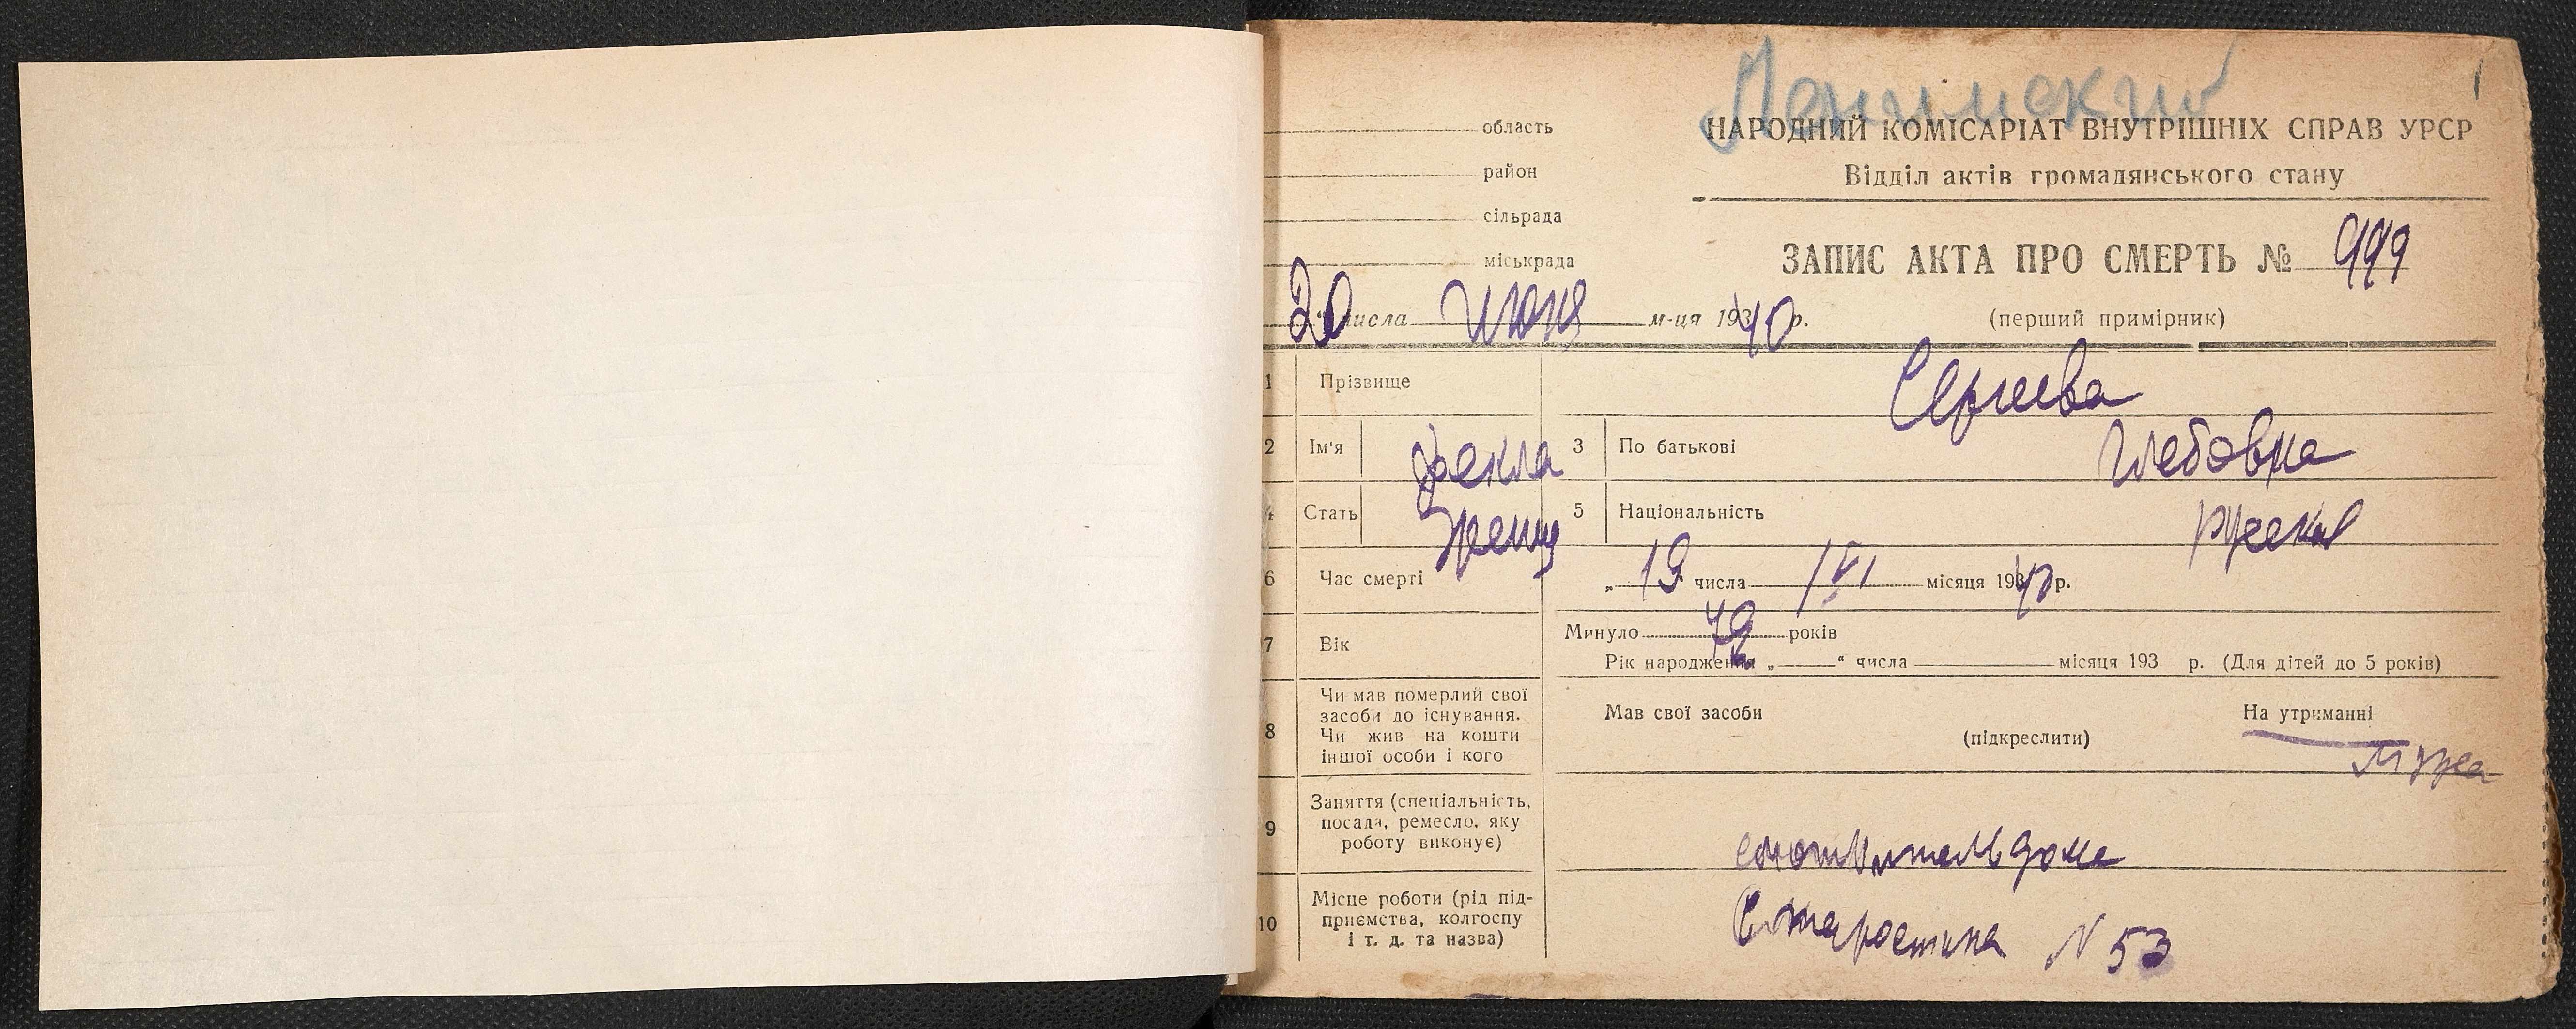 Ленинский
1
область
район
сільрада
міськрада
НАРОДНИЙ КОМІСАРІАТ ВНУТРІШНІХ СПРАВ УРСР
Відділ актів громадянського стану
ЗАПИС АКТА ПРО СМЕРТЬ № 999
(перший примірник)
20 числа июня м-ця 1940 р.
1 Прізвище Сергеева
2 Ім'я Фекла 3 По батькові Глебовна
4 Стать женщ 5 Національність русская
6 Час смерті „ 19 числа VI місяця 1940 р.
7 Вік Минуло 72 років
Рік народження „ “ числа місяця 193 р. (Для дітей до 5 років)
8 Чи мав померлий свої
засоби до існування.
Чи жив на кошти
іншої особи і кого
Мав свої засоби На утриманні
(підкреслити)
мужа
9 Заняття (спеціальність,
посада, ремесло, яку
роботу виконує)
дома
10 Місце роботи (рід під-
приємства, колгоспу
і т. д. та назва)
Старостина N 53